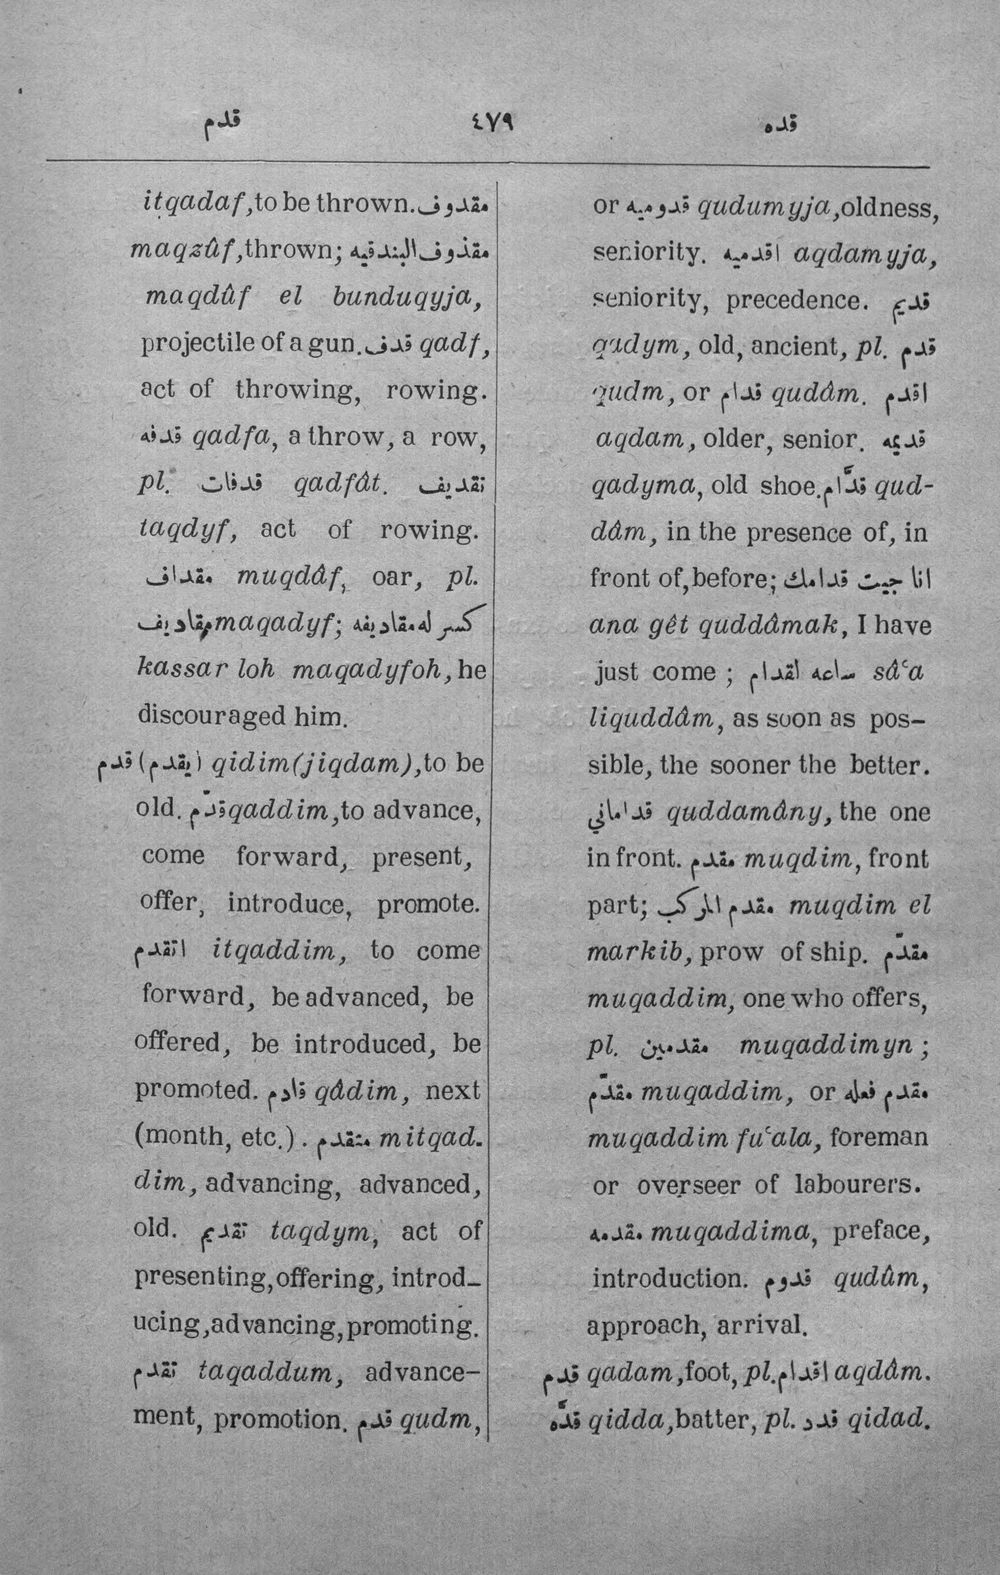 قدم ٤٧٩ قده
itqadaf, to be thrown. مقدوف
maqzûf, thrown; مقذوف البندقيه
maqdûf el bunduqyja,
projectile of a gun. قدف qadf,
act of throwing, rowing.
قدفه qadfa, a throw, a row,
pl. قدفات qadfât. تقديف
taqdyf, act of rowing.
مقداف muqdâf, oar, pl.
مقاديف maqadyf; كسر له مقاديفه
kassar loh maqadyfoh, he
discouraged him.
قدم (يقدم) qidim (jiqdam), to be
old. قدّم qaddim, to advance,
come forward, present,
offer, introduce, promote.
اتقدم itqaddim, to come
forward, be advanced, be
offered, be introduced, be
promoted. قادم qâdim, next
(month, etc.). متقدم mitqad-
dim, advancing, advanced,
old. تقديم taqdym, act of
presenting, offering, introd-
ucing, advancing, promoting.
تقدم taqaddum, advance-
ment, promotion. قدم qudm,
or قدوميه qudumyja, oldness,
seniority. اقدميه aqdamyja,
seniority, precedence. قديم
qadym, old, ancient, pl. قدم
qudm, or قدام qudâm. اقدم
aqdam, older, senior. قديمه
qadyma, old shoe. قدّام qud-
dâm, in the presence of, in
front of, before; انا جيت قدامك
ana gêt quddâmak, I have
just come; ساعه لقدام sâʿa
liquddâm, as soon as pos-
sible, the sooner the better.
قداماني quddamâny, the one
in front. مقدم muqdim, front
part; مقدم المركب muqdim el
markib, prow of ship. مقدّم
muqaddim, one who offers,
pl. مقدمين muqaddimyn;
مقدّم muqaddim, or مقدم فعله
muqaddim fuʿala, foreman
or overseer of labourers.
مقدمه muqaddima, preface,
introduction. قدوم qudûm,
approach, arrival.
قدم qadam, foot, pl. اقدام aqdâm.
قدّه qidda, batter, pl. قدد qidad.